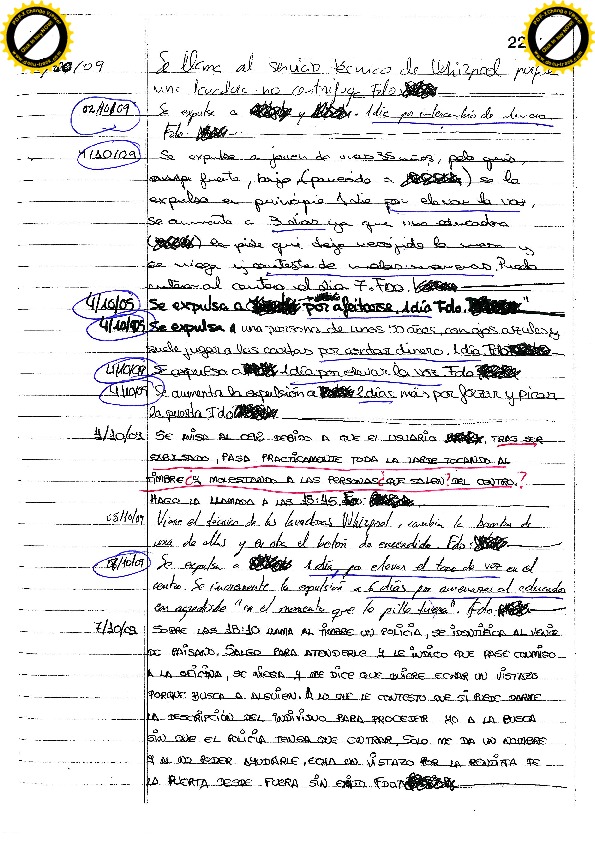 22
/09 Se llama al servicio técnico de Whirpool porque
una lavadora no centrifuga Fdo:
02/10/09 Se expulsa a y 1 día por intercambio de
Fdo.
1/10/09 Se expulsa a joven de unos 35 años, pelo gris,
fuerte, bajo, (parecido a ) se le
expulsa en principio 1 día por elevar la voz,
se aumenta a 3 días ya que una educadora
( ) le pide que deje recogido la mesa y
se niega y contesta de malas maneras. Puede
entrar al centro el día 7. Fdo.
4/10/09 Se expulsa a por afeitarse. 1 día Fdo.
4/10/09 Se expulsa a una persona de unos 50 años, con ojos azules y
suele jugar a las cartas por apostar dinero. 1 día Fdo
4/10/09 Se expulsa a 1 día por elevar la voz Fdo
4/10/09 Se aumenta la expulsión a 2 días más por forzar y picar
la puerta Fdo
4/10/09 SE AVISA AL DEBIDO A QUE EL USUARIO , TRAS SER
EXPULSADO, PASA PRÁCTICAMENTE TODA LA TARDE TOCANDO AL
TIMBRE ¿Y MOLESTANDO A LAS PERSONAS ¿QUE SALEN? DEL CENTRO.?
HAGO LA LLAMADA A LAS 18:45. Fdo:
05/10/09 Viene el técnico de las lavadoras Whirpool, cambia la bomba de
una de ellas y en otra el botón de encendido Fdo:
06/10/09 Se expulsa a 1 día por elevar el tono de voz en el
centro. Se incrementa la expulsión a 6 días por amenazar al educador
con agredirle "en el momento que lo pille fuera". Fdo.
7/10/09 SOBRE LAS 18:10 LLAMA AL TIMBRE UN POLICÍA, SE IDENTIFICA AL VENIR
DE PAISANO. SALGO PARA ATENDERLE Y LE INDICO QUE PASE CONMIGO
A LA OFICINA, SE NIEGA Y ME DICE QUE QUIERE ECHAR UN VISTAZO
PORQUE BUSCA A ALGUIEN. A LO QUE LE CONTESTO QUE SI PUEDE DARME
LA DESCRIPCIÓN DEL INDIVIDUO PARA PROCEDER YO A LA BUSCA
SIN QUE EL POLICÍA TENGA QUE ENTRAR, SOLO ME DA UN NOMBRE
Y AL NO PODER AYUDARLE, ECHA UN VISTAZO POR LA RENDIJA DE
LA PUERTA DESDE FUERA SIN ÉXITO. FDO: